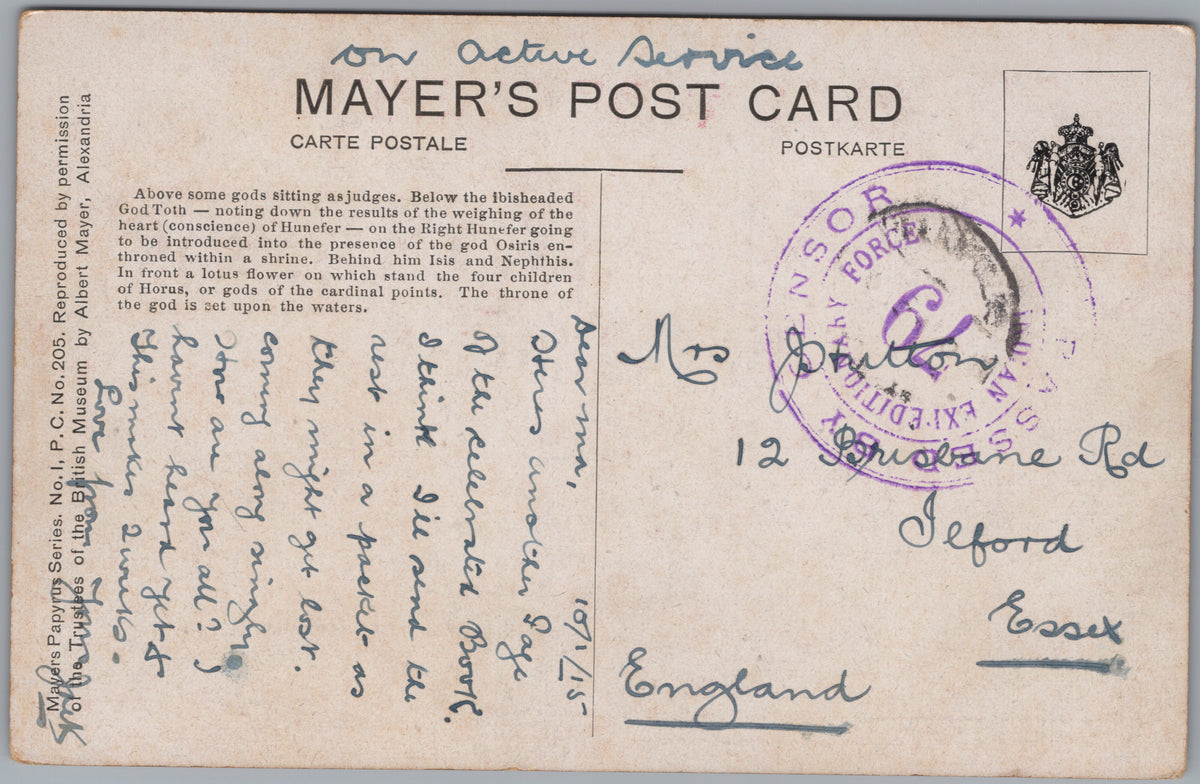 on active service
MAYER'S POST CARD
CARTE POSTALE
POSTKARTE
Above some gods sitting as judges. Below the ibisheaded
God Toth — noting down the results of the weighing of the
heart (conscience) of Hunefer — on the Right Hunefer going
to be introduced into the presence of the god Osiris en-
throned within a shrine. Behind him Isis and Nephthis.
In front a lotus flower on which stand the four children
of Horus, or gods of the cardinal points. The throne of
the god is set upon the waters.
Mayers Papyrus Series. No. 1, P. C. No. 205. Reproduced by permission
of the Trustees of the British Museum by Albert Mayer, Alexandria
10/1/15
Dear ma,
Heres another Page
of the celebrated Book.
I think I'll send the
rest in a packet as
they might get lost.
coming along singly.
How are you all? I
havent heard yet &
this makes 2 weeks.
Love from
PASSED BY CENSOR
INDIAN EXPEDITIONARY FORCE
Mrs J Hutton
12 Brisbane Rd
Ilford
Essex
England